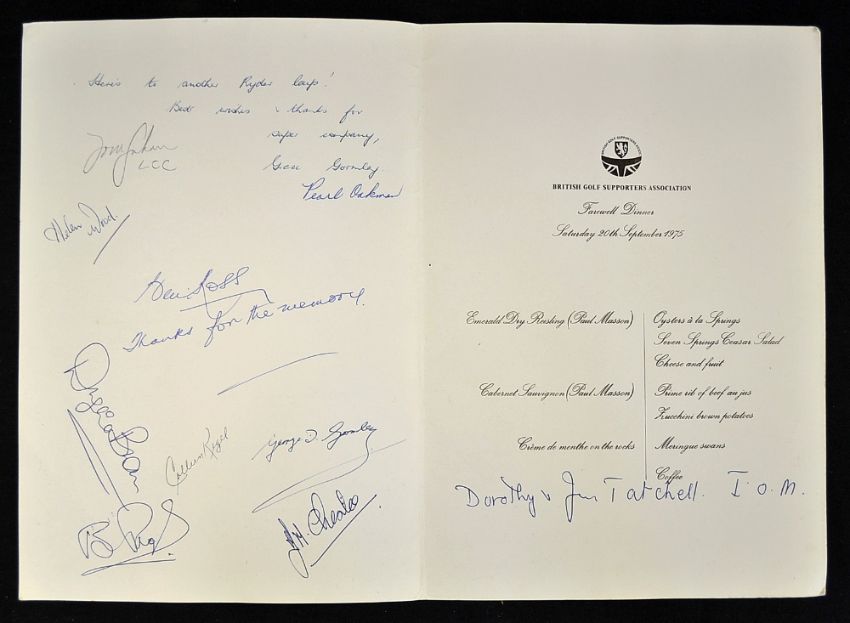 Here's to another Ryder Cup!
Best wishes & thanks for
super company,
LCC
Gormley
Pearl Oakman
Helen Ward.
Ross
Thanks for the memory.
George D. Gormley
BRITISH GOLF SUPPORTERS ASSOCIATION
Farewell Dinner
Saturday 20th September 1975
Emerald Dry Reisling (Paul Masson)
Oysters à la Springs
Seven Springs Ceasar Salad
Cheese and fruit
Cabernet Sauvignon (Paul Masson)
Prime rib of beef au jus
Zucchini brown potatoes
Crème de menthe on the rocks
Meringue swans
Coffee
Dorothy & Jim Tatchell. I.O.M.